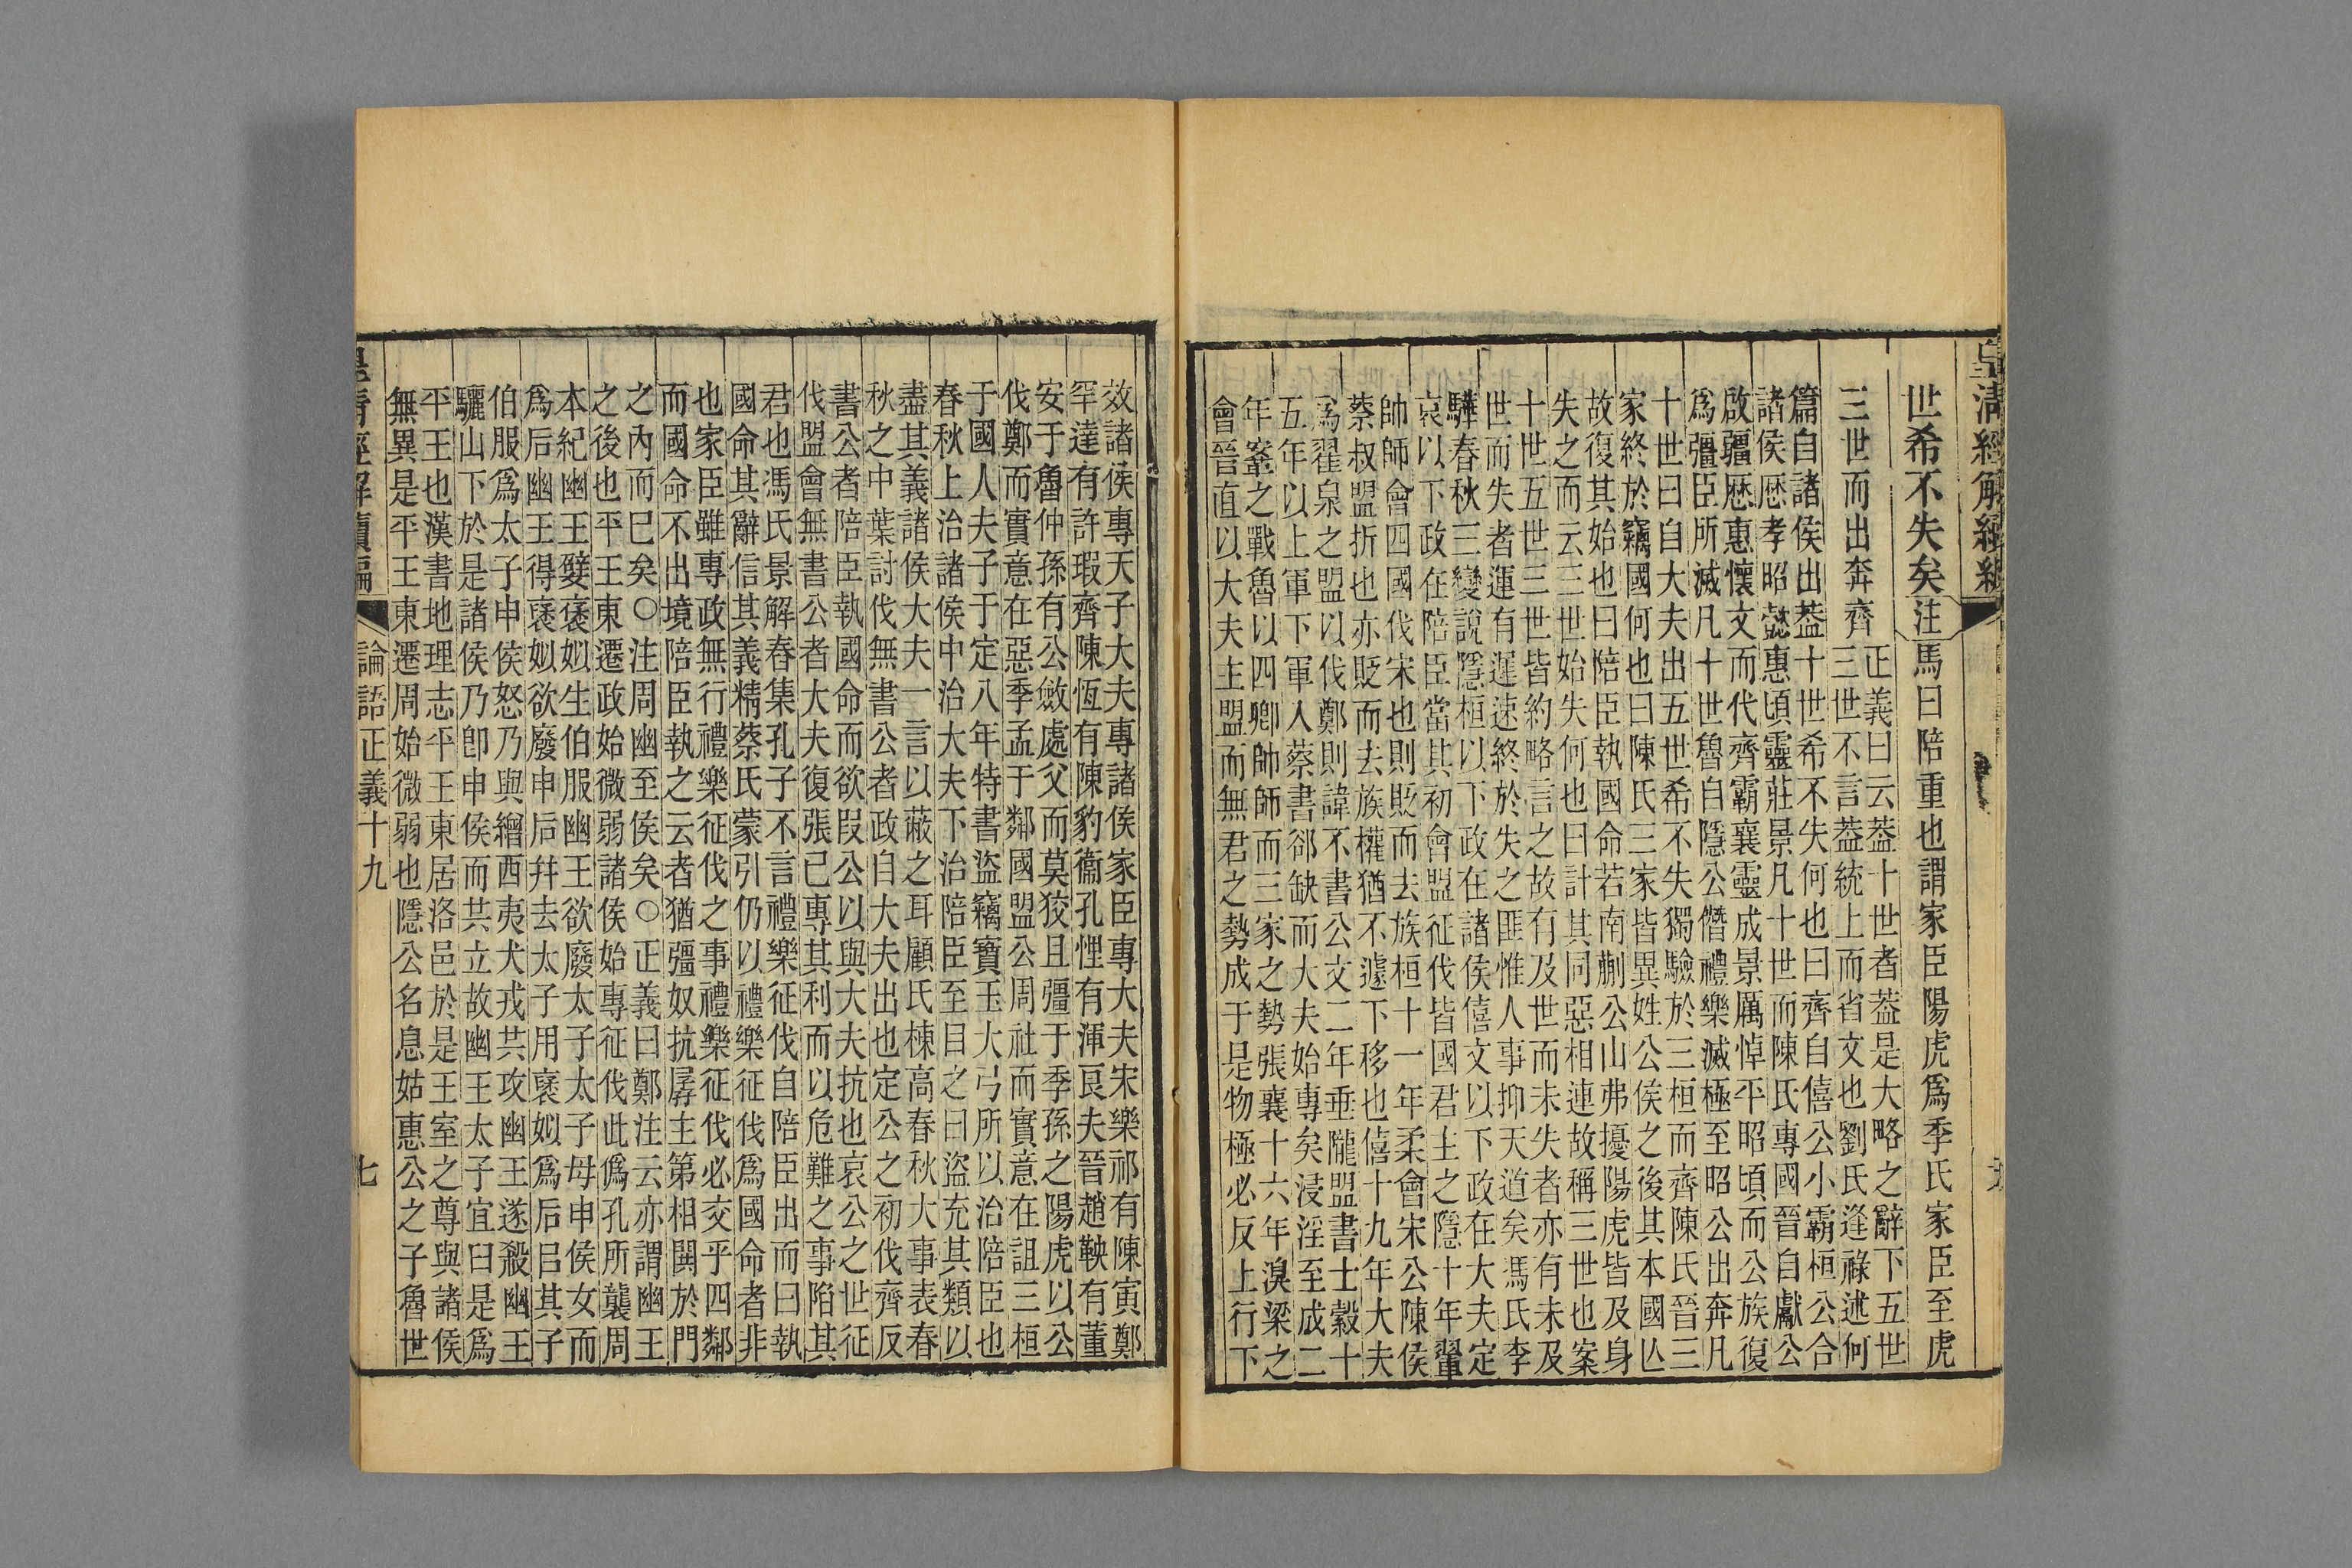 皇清經解續編
世希不失矣注馬曰陪重也謂家臣陽虎爲季氏家臣至虎
三世而出奔齊
正義曰云葢十世者葢是大略之辭下五世
三世不言葢統上而省文也劉氏逢祿述何
篇自諸侯出葢十世希不失何也曰齊自僖公小霸桓公合
諸侯歴孝昭懿惠頃靈莊景凡十世而陳氏專國晉自獻公
啟疆歴惠懷文而代齊霸襄靈成景厲悼平昭頃而公族復
爲彊臣所滅凡十世魯自隱公僭禮樂滅極至昭公出奔凡
十世曰自大夫出五世希不失獨驗於三桓而齊陳氏晉三
家終於竊國何也曰陳氏三家皆異姓公侯之後其本國亾
故復其始也曰陪臣執國命若南蒯公山弗擾陽虎皆及身
失之而云三世始失何也曰計其同惡相連故稱三世也案
十世五世三世皆約略言之故有及世而未失者亦有未及
世而失者運有遲速終於失之匪惟人事抑天道矣馮氏李
驊春秋三變說隱桓以下政在諸侯僖文以下政在大夫定
哀以下政在陪臣當其初會盟征伐皆國君主之隱十年翬
帥師會四國伐宋也則貶而去族桓十一年柔會宋公陳侯
蔡叔盟折也亦貶而去族權猶不遽下移也僖十九年大夫
爲翟泉之盟以伐鄭則諱不書公文二年垂隴盟書士縠十
五年以上軍下軍入蔡書郤缺而大夫始專矣浸淫至成二
年鞌之戰魯以四卿帥師而三家之勢張襄十六年溴梁之
會晉直以大夫主盟而無君之勢成于是物極必反上行下
效諸侯專天子大夫專諸侯家臣專大夫宋樂祁有陳寅鄭
罕達有許瑕齊陳恆有陳豹衞孔悝有渾良夫晉趙鞅有董
安于魯仲孫有公斂處父而莫狡且彊于季孫之陽虎以公
伐鄭而實意在惡季孟于鄰國盟公周社而實意在詛三桓
于國人夫子于定八年特書盜竊寶玉大弓所以治陪臣也
春秋上治諸侯中治大夫下治陪臣至目之曰盜充其類以
盡其義諸侯大夫一言以蔽之耳顧氏棟高春秋大事表春
秋之中葉討伐無書公者政自大夫出也定公之初伐齊反
書公者陪臣執國命而欲叚公以與大夫抗也哀公之世征
伐盟會無書公者大夫復張已專其利而以危難之事陷其
君也馮氏景解春集孔子不言禮樂征伐自陪臣出而曰執
國命其辭信其義精蔡氏蒙引仍以禮樂征伐爲國命者非
也家臣雖專政無行禮樂征伐之事禮樂征伐必交乎四鄰
而國命不出境陪臣執之云者猶彊奴抗孱主第相閧於門
之內而巳矣○注周幽至侯矣○正義曰鄭注云亦謂幽王
之後也平王東遷政始微弱諸侯始專征伐此僞孔所襲周
本紀幽王嬖褒姒生伯服幽王欲廢太子太子母申侯女而
爲后幽王得褒姒欲廢申后幷去太子用褒姒爲后㠯其子
伯服爲太子申侯怒乃與繒西夷犬戎共攻幽王遂殺幽王
驪山下於是諸侯乃卽申侯而共立故幽王太子宜臼是爲
平王也漢書地理志平王東居洛邑於是王室之尊與諸侯
無異是平王東遷周始微弱也隱公名息姑惠公之子魯世
皇清經解續編 論語正義十九 七